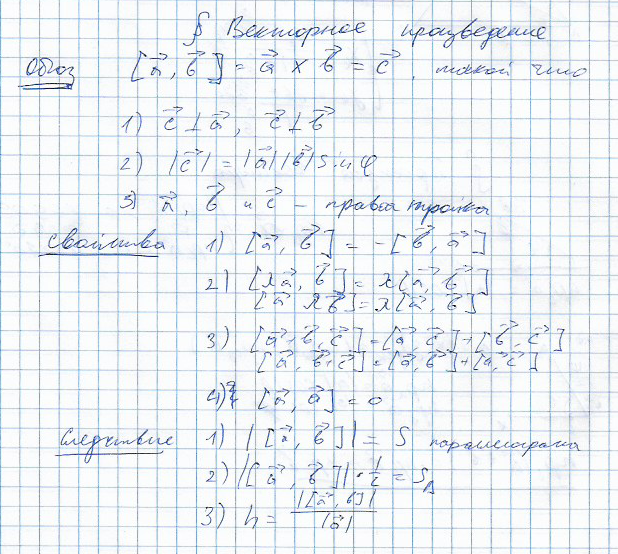 § Векторное произведение
Обоз [a⃗, b⃗] = a⃗ × b⃗ = c⃗, такой что
1) c⃗ ⊥ a⃗, c⃗ ⊥ b⃗
2) |c⃗| = |a⃗||b⃗| sin φ
3) a⃗, b⃗ и c⃗ – правая тройка
Свойства 1) [a⃗, b⃗] = -[b⃗, a⃗]
2) [λa⃗, b⃗] = λ[a⃗, b⃗]
[a⃗ λb⃗] = λ[a⃗, b⃗]
3) [a⃗+b⃗, c⃗] = [a⃗, c⃗] + [b⃗, c⃗]
[a⃗, b⃗+c⃗] = [a⃗, b⃗] + [a, c⃗]
4) [a⃗, a⃗] = 0
Следствие 1) |[a⃗, b⃗]| = S параллелограма
2) |[a⃗, b⃗]| · 1/2 = S_Δ
3) h = |[a⃗, b]| / |a⃗|